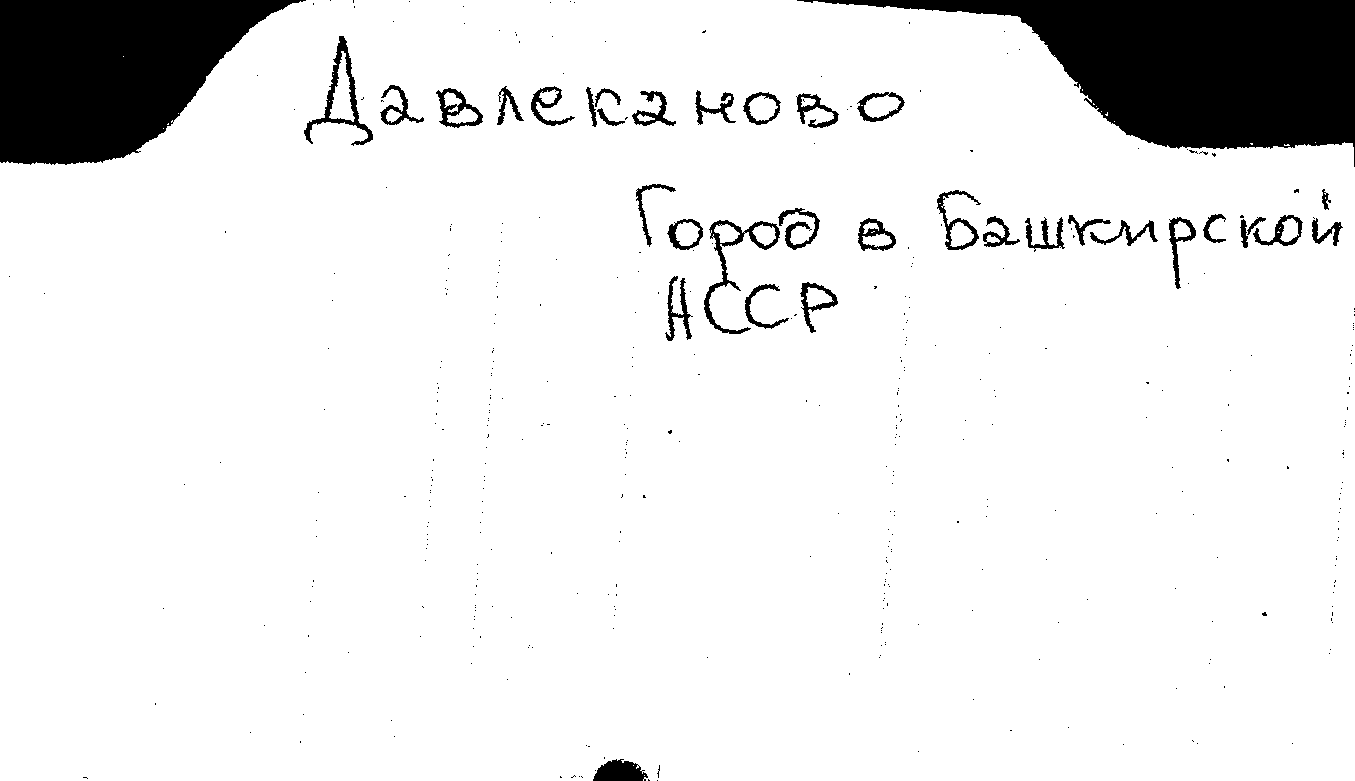 Давлеканово
Город в Башкирской
АССР